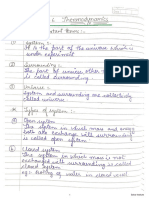 6 Thermodynamics
Important terms :-
① System :-
It is the part of the universe which is
under experiment
② Surrounding :-
The part of universe other
is called surrounding
③ Universe :-
System and surrounding are collectively
called universe.
* Types of system :-
① Open system
The system in which mass and energy
both are exchange with surrounding
is called open system
② Closed system
The system in which mass is not
exchanged with surrounding
called closed system
eg:- heating of water in closed vessel